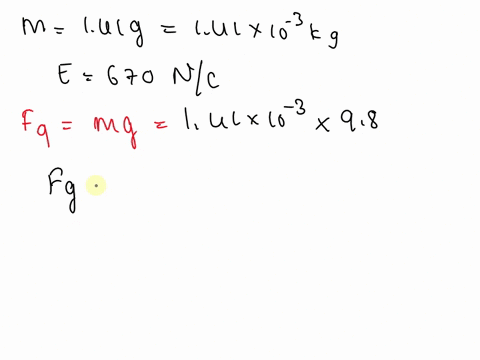 M = 1.41g = 1.41 × 10⁻³ kg
E = 670 N/C
Fg = mg = 1.41 × 10⁻³ × 9.8
Fg